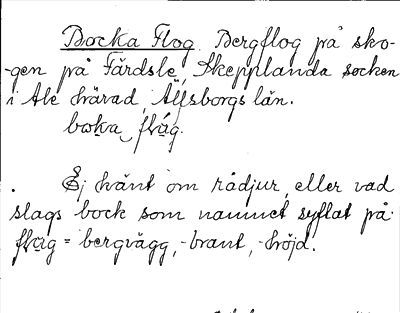 Bocka Flog. Bergflog på sko-
-gen på Färdsle, Skepplanda socken
i Ale härad, Älfsborgs län.
boka flåg.
Ej känt om rådjur, eller vad
slags bock som namnet syftat på.
flåg = bergvägg, -brant, -höjd.